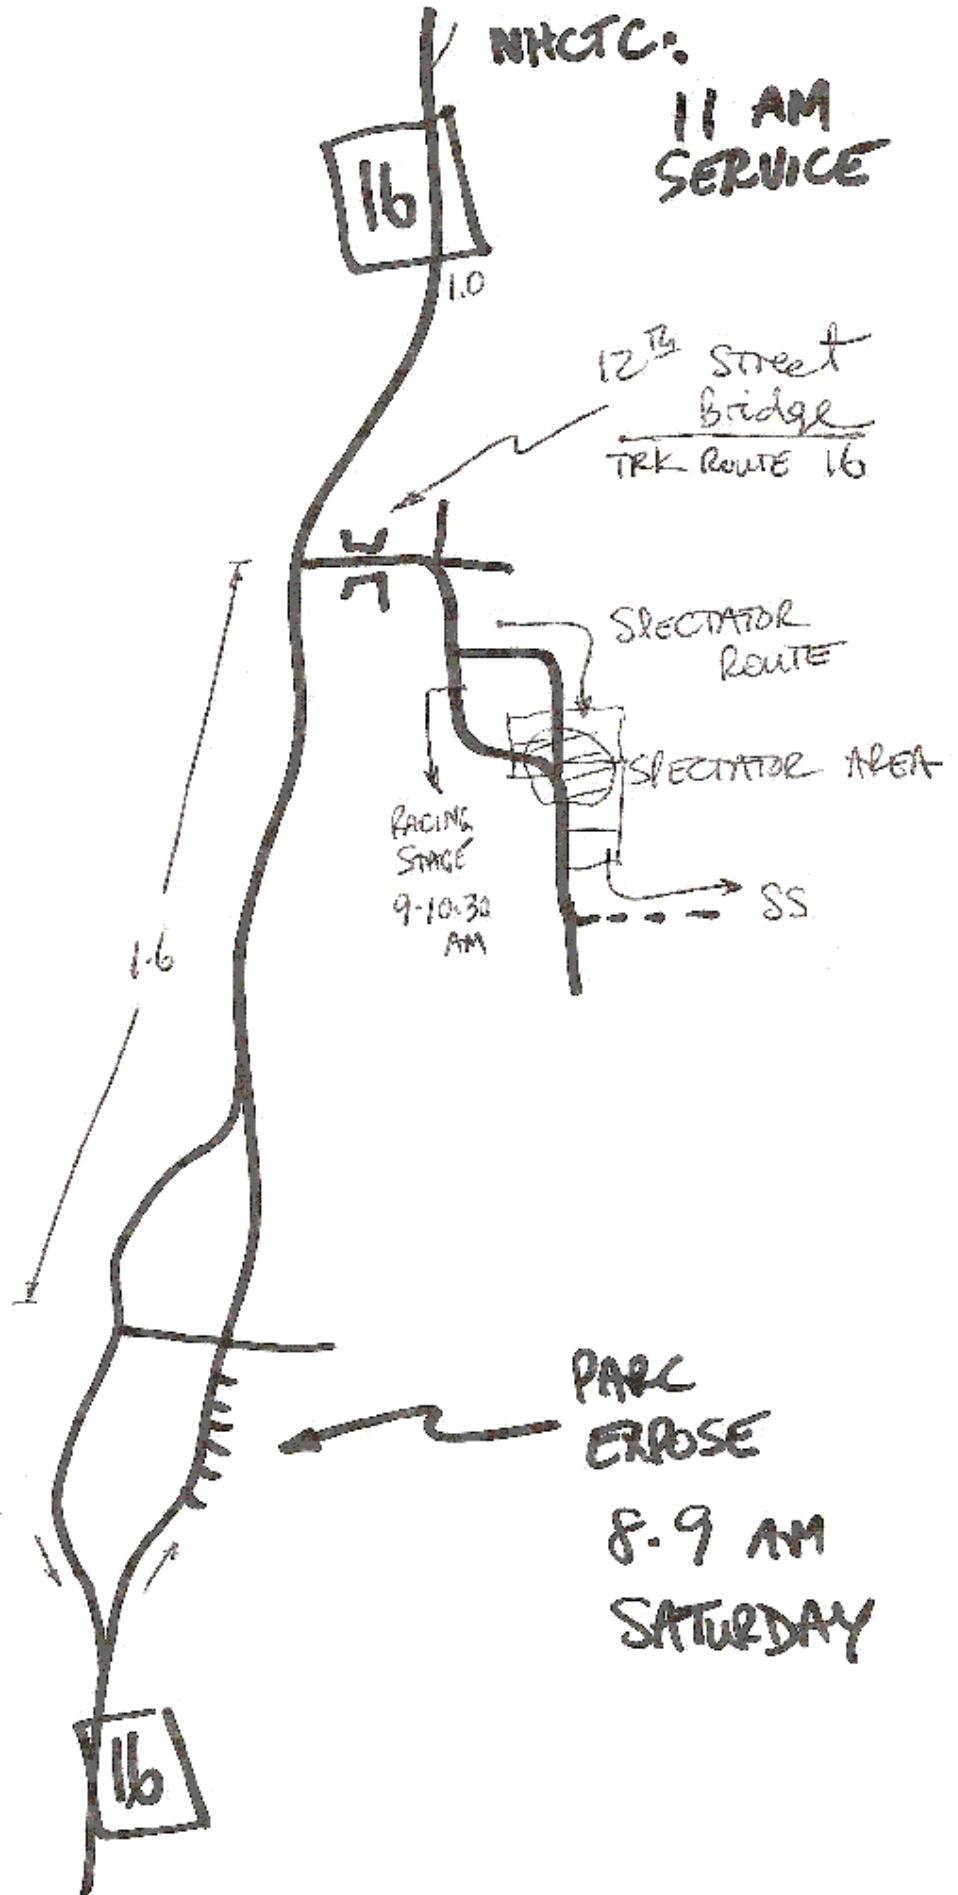 NHCTC:
11 AM
SERVICE
16
1.0
12TH Street
Bridge
TRK ROUTE 16
SPECTATOR
ROUTE
SPECTATOR AREA
RACING
STAGE
9-10:30
AM
SS
1.6
PARC
EXPOSE
8-9 AM
SATURDAY
16